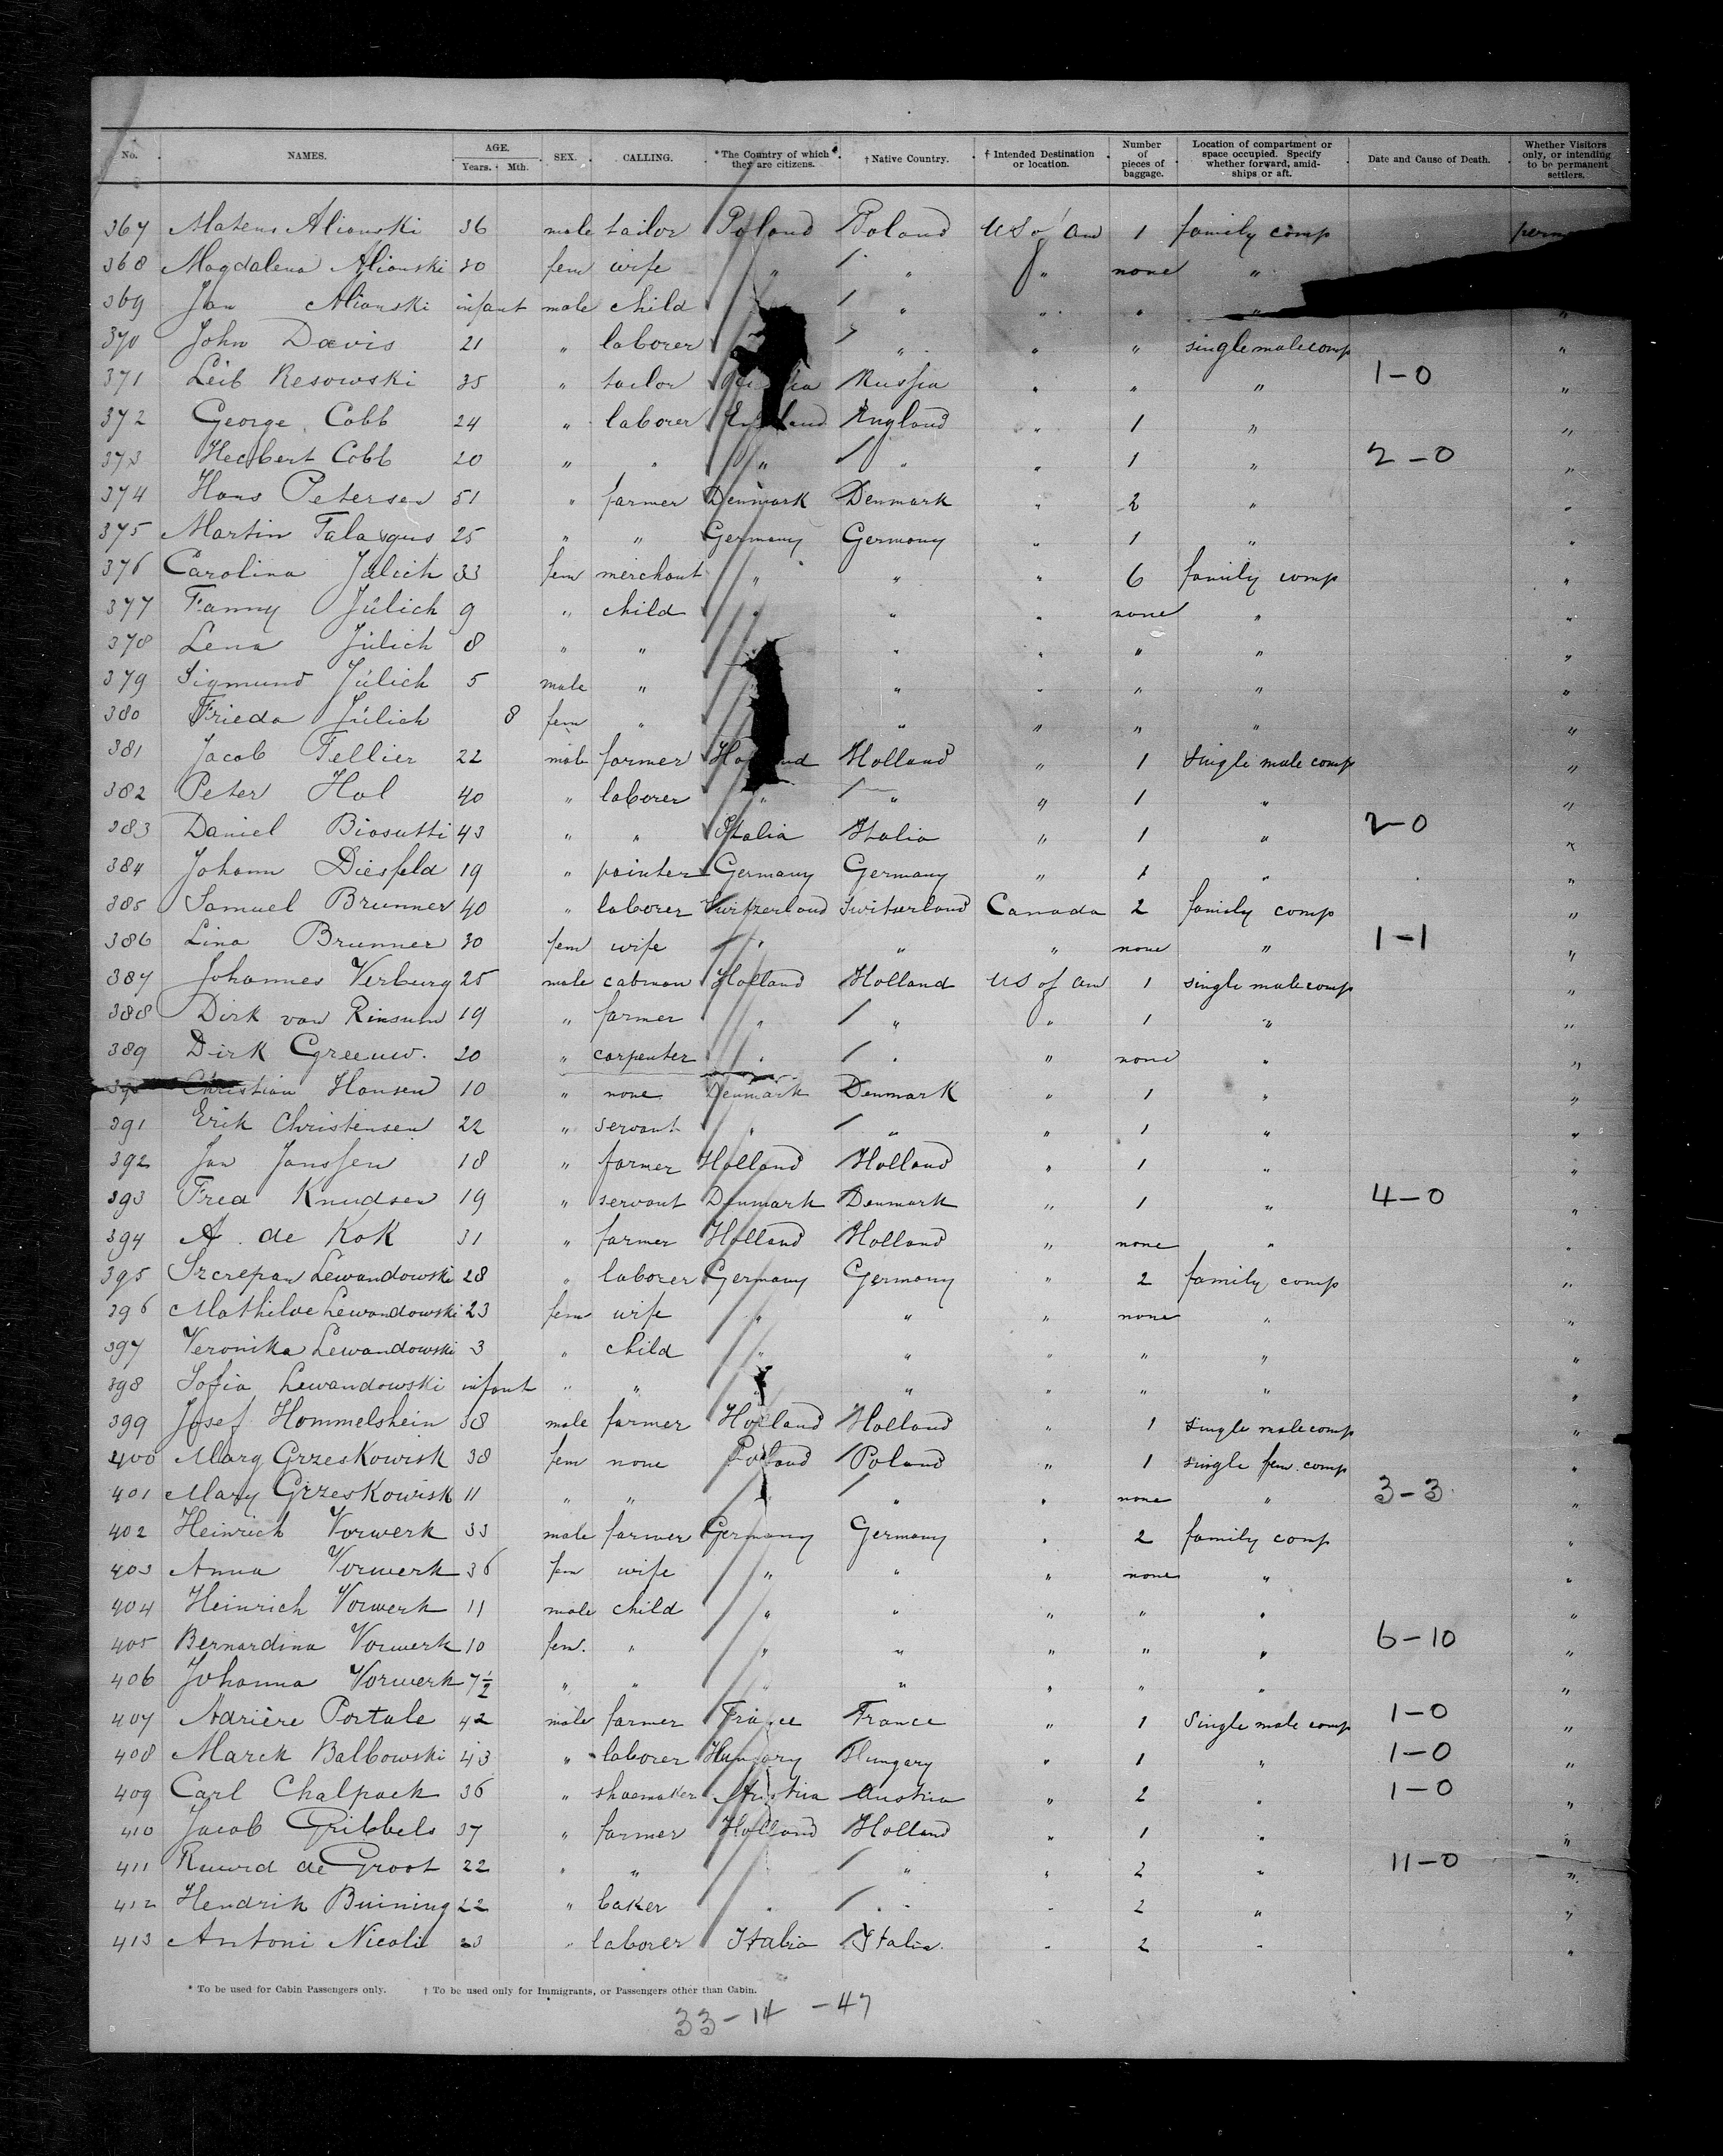 No. NAMES. AGE. Years. Mth. SEX. CALLING. *The Country of which they are citizens. †Native Country. †Intended Destination or location. Number of pieces of baggage. Location of compartment or space occupied. Specify whether forward, amidships or aft. Date and Cause of Death. Whether Visitors only, or intending to be permanent settlers.
367 Alionski 36 male tailor Poland Poland US of Am 1 family comp
368 Magdalena Alionski 30 fem wife " " " none "
369 Jan Alionski infant male child " " " "
370 John Davis 21 " laborer " " " single male comp "
371 Leib Resowski 35 " tailor Russia " " " 1-0 "
372 George Cobb 24 " laborer England England " 1 " "
373 Herbert Cobb 20 " " " " " 1 " 2-0 "
374 Hans Petersen 51 " farmer Denmark Denmark " 2 " "
375 Martin 25 " " Germany Germany " 1 " "
376 Carolina Jülich 33 fem merchant " " " 6 family comp "
377 Fanny Jülich 9 " child " " " none " "
378 Lena Jülich 8 " " " " " " "
379 Sigmund Jülich 5 male " " " " " "
380 Frieda Jülich 8 fem " " " " " "
381 Jacob Tellier 22 male farmer Holland Holland " 1 single male comp "
382 Peter Hol 40 " laborer " " " 1 " "
383 Daniel Biasutti 43 " " Italia Italia " 1 " 2-0 "
384 Johann Diesfeld 19 " painter Germany Germany " 1 " "
385 Samuel Brunner 40 " laborer Switzerland Switserland Canada 2 family comp "
386 Lina Brunner 30 fem wife " " " none " 1-1 "
387 Johannes Verburg 25 male cabman Holland Holland US of Am 1 single male comp "
388 Dirk van Rinsum 19 " farmer " " " 1 " "
389 Dirk Greeuw. 20 " carpenter " " " none " "
Christian Hansen 10 " none Denmark Denmark " 1 " "
391 Erik Christensen 22 " servant " " " 1 " "
392 Jan Janssen 18 " farmer Holland Holland " 1 " "
393 Fred Knudsen 19 " servant Denmark Denmark " 1 " 4-0 "
394 A. de Kok 31 " farmer Holland Holland " none " "
395 Szcrepan Lewandowski 28 " laborer Germany Germany " 2 family comp "
396 Mathilde Lewandowski 23 fem wife " " " none " "
397 Veronika Lewandowski 3 " child " " " " " "
398 Sofia Lewandowski infant " " " " " " "
399 Josef Hommelshein 38 male farmer Holland Holland " 1 single male comp "
400 Mary Grzeskowisk 38 fem none Poland Poland " 1 single fem. comp "
401 Mary Grzeskowisk 11 " " " " " none " 3-3 "
402 Heinrich Vorwerk 33 male farmer Germany Germany " 2 family comp "
403 Anna Vorwerk 36 fem wife " " " none " "
404 Heinrich Vorwerk 11 male child " " " " " "
405 Bernardina Vorwerk 10 fem. " " " " " " 6-10 "
406 Johanna Vorwerk 7½ " " " " " " " "
407 Adrière Portale 42 male farmer France France " 1 Single male comp 1-0 "
408 Marek Balbowski 43 " laborer Hungary Hungary " 1 " 1-0 "
409 Carl Chalpack 36 " shoemaker Austria Austria " 2 " 1-0 "
410 Jacob Gribbels 37 " farmer Holland Holland " 1 " "
411 Ruurd de Groot 22 " " " " 2 " 11-0 "
412 Hendrik Buining 22 " baker " " " 2 " "
413 Antoni Nicoli 23 " laborer Italia Italia. " 2 " "
* To be used for Cabin Passengers only. † To be used only for Immigrants, or Passengers other than Cabin.
33-14 -47